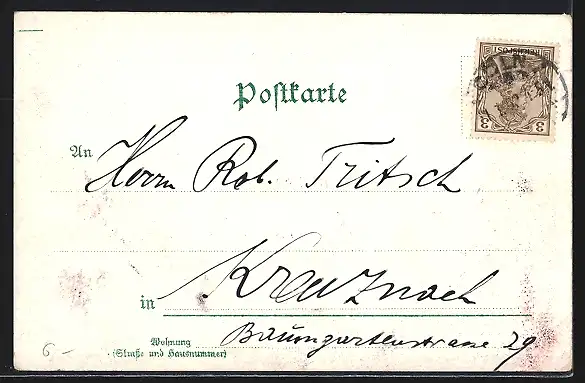 Postkarte
An Herrn Rob. Fritsch
in Kreuznach
Wohnung
(Straße und Hausnummer)
Baumgartenstrasse 29
6 –
REICHSPOST
3 3
CÖLN